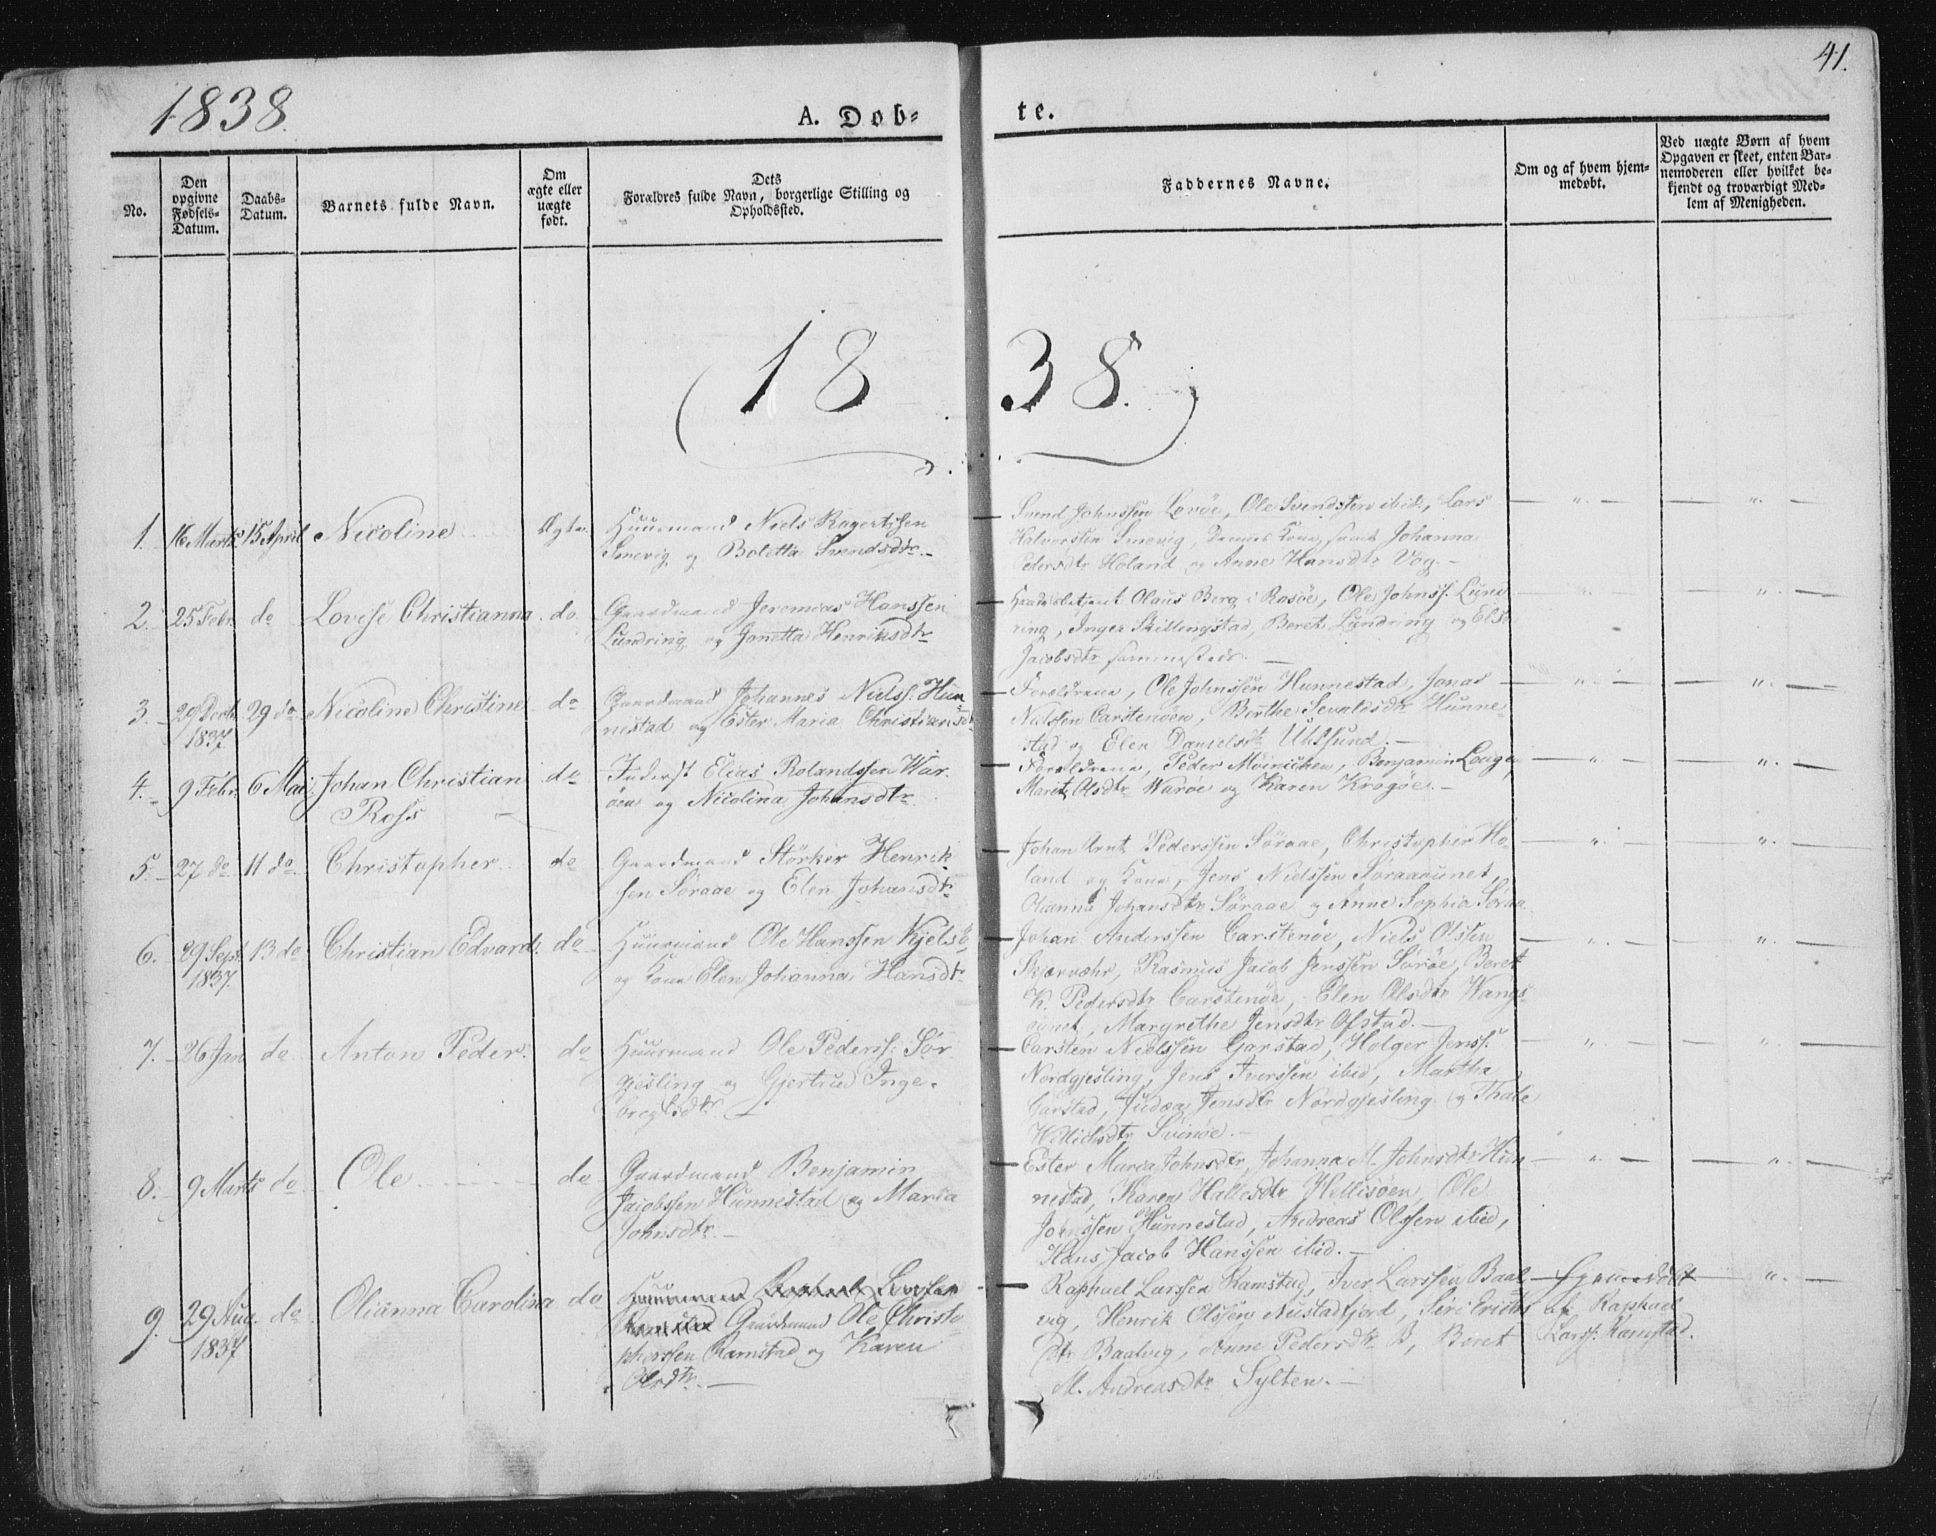 1838.
A. Dob=
te.
41.
No.
Den opgivne Fødsels-Datum.
Daabs-Datum.
Barnets fulde Navn.
Om ægte eller uægte født.
Dets Forældres fulde Navn, borgerlige Stilling og Opholdssted.
Faddernes Navne.
Om og af hvem hjemmedøbt.
Ved uægte Børn af hvem Opgaven er skeet, enten Barnemoderen eller hvilket bekjendt og troværdigt Medlem af Menigheden.
18 38.
1. 16 Marts 15 April Nicoline Ægte
Huusmand Niels Ragertssen
Smevig og Boletta Svendsdtr
Svend Johnssen Lovøe, Ole Svendssen ibid, Lars
Halvorssen Smevig, Dennes Kone, samt Johanna
Pedersdtr Holand og Anne Hansdtr Vog.
2. 25 Febr. do Lovise Christianna do.
Gaardmand Jeremias Hanssen
Lundring og Jonetta Henriksdtr
Olaus Berg i Rosøe, Ole Johnss. Lund
ring, Inger Skillengstad, Beret Lundring og Else
Jacobsdtr sammesteds.
3. 29 Decbr 1837 29 do Nicoline Christine do
Gaardmand Johannes Nielss: Hun
nestad og Ester Maria Christiansdtr
Forældrene, Ole Johnssen Hunnestad, Jonas
Nielssen Carstenøen, Berthe Sevaldsdtr Hunne-
stad og Elen Danielsdtr Ulvsund.
4. 9 Febr. 6 Mai Johan Christian Ross do
Inderst Elias Rolandssen War
øen og Nicolina Johansdtr
Forældrene, Peder Moinichen, Benjamin Lauge
Marit Olsdtr Warøe og Karen Krogøe.
5. 27 do 11 do Christopher do
Gaardmand Störker Henrik
sen Søraae og Elen Johansdtr
Johan Arnt Pederssen Søraae, Christopher Ho
land og Kone, Jens Nielssen Søraaunet,
Olianna Johansdtr Søraae og Anne Sophia Søraa
6. 29 Sept. 1837. 13 do Christian Edvard do
Huusmand Ole Hanssen Kjels
og Kone Elen Johanna Hansdtr
Johan Anderssen Carstenøe, Niels Olssen
Skjærvæhr, Rasmus Jacob Jenssen Sørøe, Beret
K. Pedersdtr Carstenøe, Elen Olsdtr Wangs
Margrethe Jensdtr Ofstad.
7. 26 Jan do Anton Peder do
Huusmand Ole Pederss: Sør
gjesling og Gjertrud Inge-
bregtsdtr
Carsten Nielssen Garstad, Holger Jenss.
Nordgjesling, Jens Iverssen ibid, Martha
Garstad, Judæa Jensdtr Nordgjesling og Thale
Willichsdtr Svinøe.
8. 9 Marts do Ole do
Gaardmand Benjamin
Jacobssen Hunnestad og Maria
Johnsdtr.
Ester Maria Johnsdtr, Johanna M. Johnsdtr Hun
nestad, Karen Hallesdtr Hellisøen, Ole
Hunnestad, Andreas Olssen ibid,
Hans Jacob Hanssen ibid.
9. 29 Aug. 1837 do Olianna Carolina do
Gaardmand Ole Christo-
phersen Ramstad og Karen
Olsdtr.
Raphael Larssen Ramstad, Iver Larssen Baal
vig, Henrik Olssen Nustadfjord, Siri Eriks
dtr Baalvig, Anne Pedersdtr B, Beret
M. Andreasdtr Sylten.
Hjemmedøbt
af Raphael
Larss: Ramstad.